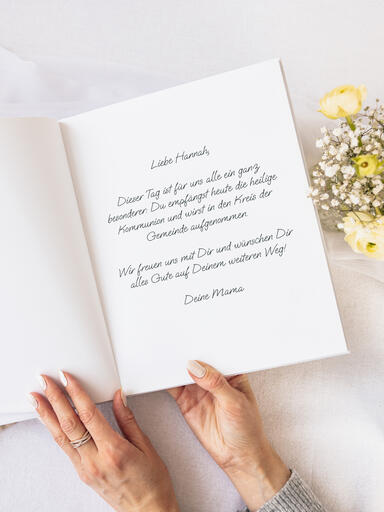 Liebe Hannah,
Dieser Tag ist für uns alle ein ganz
besonderer. Du empfängst heute die heilige
Kommunion und wirst in den Kreis der
Gemeinde aufgenommen.
Wir freuen uns mit Dir und wünschen Dir
alles Gute auf Deinem weiteren Weg!
Deine Mama